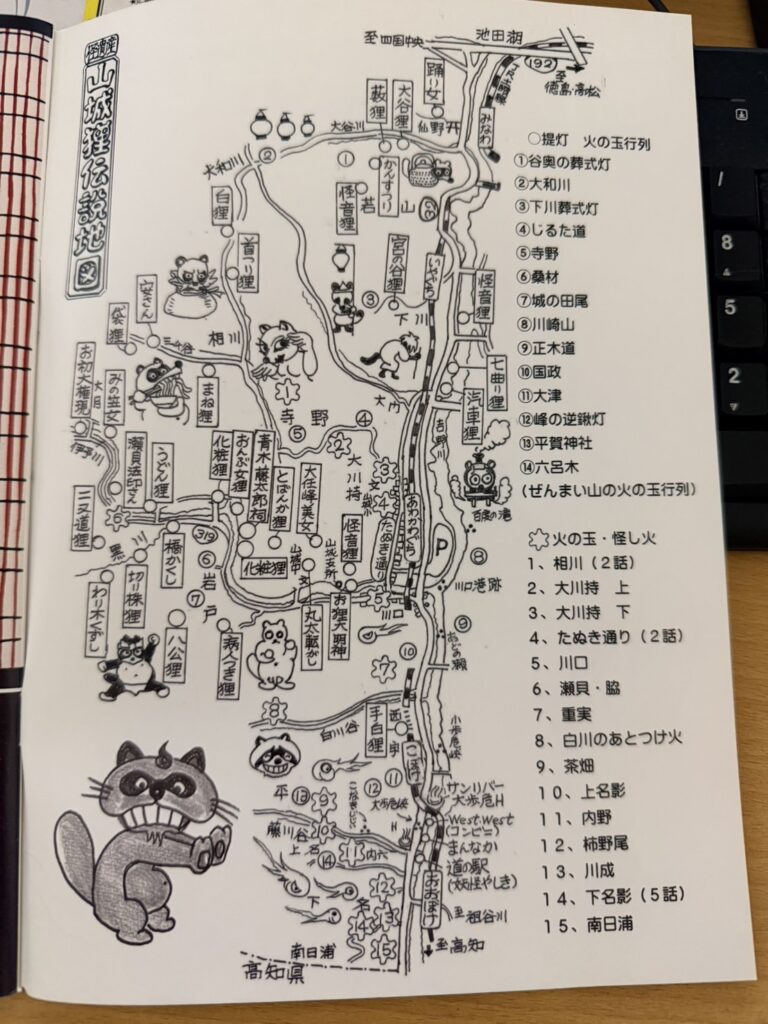 怪遺産
山城狸伝説地図
至四国中央
池田湖
192
至
徳島・高松
踊り女
みなわ
仙野
大谷川
藪狸
大谷狸
かんすつり
①
②
大和川
若
山
32
怪音狸
白狸
首つり狸
宮の谷狸
いやぐち
怪音狸
③
下川
安さん
袋狸
相川
七曲り狸
汽車狸
まね狸
大内
吉野川
お初大権現
大月
みの笠女
伊予川
1
寺野
⑤
④
2
大川持
3
4
たぬき通り
あわかわぐち
百度の滝
瀬貝法印さん
うどん狸
化粧狸
おんぶ女狸
青木藤太郎祠
とばんか狸
大任峰美女
怪音狸
山城中
山城支所
P
⑧
二又道狸
6
319
橋かぐし
⑥
岩
戸
⑦
化粧狸
丸太転がし
お狸大明神
5
川口
川口港跡
黒川
切り株狸
わり木くずし
八公狸
病人つき狸
⑨
⑩
7
8
白川谷
手白狸
西宇
こぼけ
小歩危峡
平
⑬
9
⑫
⑪
大歩危峡
サンリバー
大歩危H
West-West
(コンビニ)
まんなか
道の駅
(妖怪やしき)
藤川谷
10
上名
⑭
11
12
下
名
13
14
15
おおぼけ
至祖谷川
至高知
南日浦
高知県
○提灯 火の玉行列
①谷奥の葬式灯
②大和川
③下川葬式灯
④じるた道
⑤寺野
⑥桑材
⑦城の田尾
⑧川崎山
⑨正木道
⑩国政
⑪大津
⑫峰の逆鍬灯
⑬平賀神社
⑭六呂木
(ぜんまい山の火の玉行列)
火の玉・怪し火
1、相川(2話)
2、大川持 上
3、大川持 下
4、たぬき通り(2話)
5、川口
6、瀬貝・脇
7、重実
8、白川のあとつけ火
9、茶畑
10、上名影
11、内野
12、柿野尾
13、川成
14、下名影(5話)
15、南日浦
8
5
2